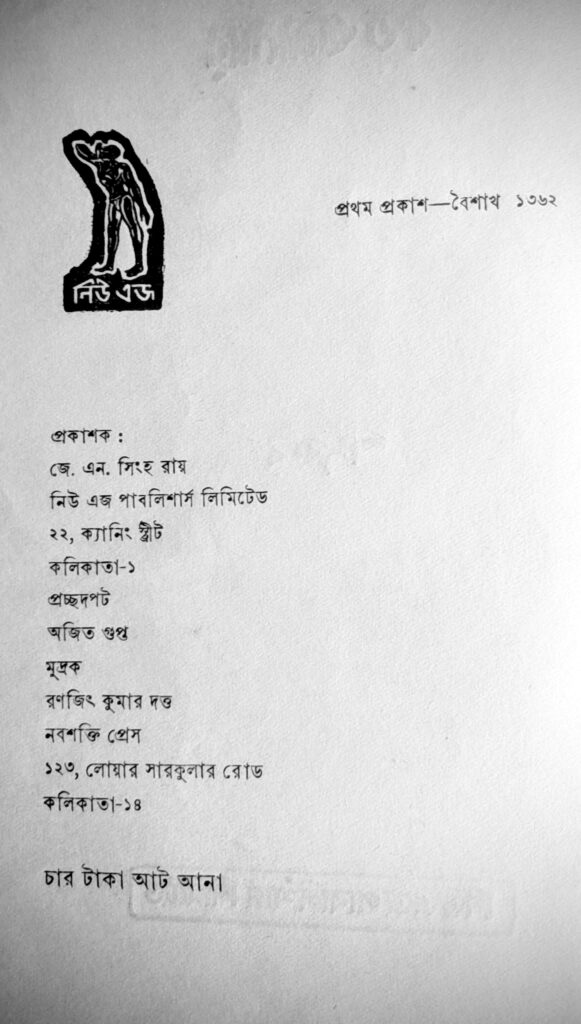 প্রথম প্রকাশ—বৈশাখ ১৩৬২
নিউ এজ
প্রকাশক :
জে. এন. সিংহ রায়
নিউ এজ পাবলিশার্স লিমিটেড
২২, ক্যানিং স্ট্রীট
কলিকাতা-১
প্রচ্ছদপট
অজিত গুপ্ত
মুদ্রক
রণজিৎ কুমার দত্ত
নবশক্তি প্রেস
১২৩, লোয়ার সারকুলার রোড
কলিকাতা-১৪
চার টাকা আট আনা